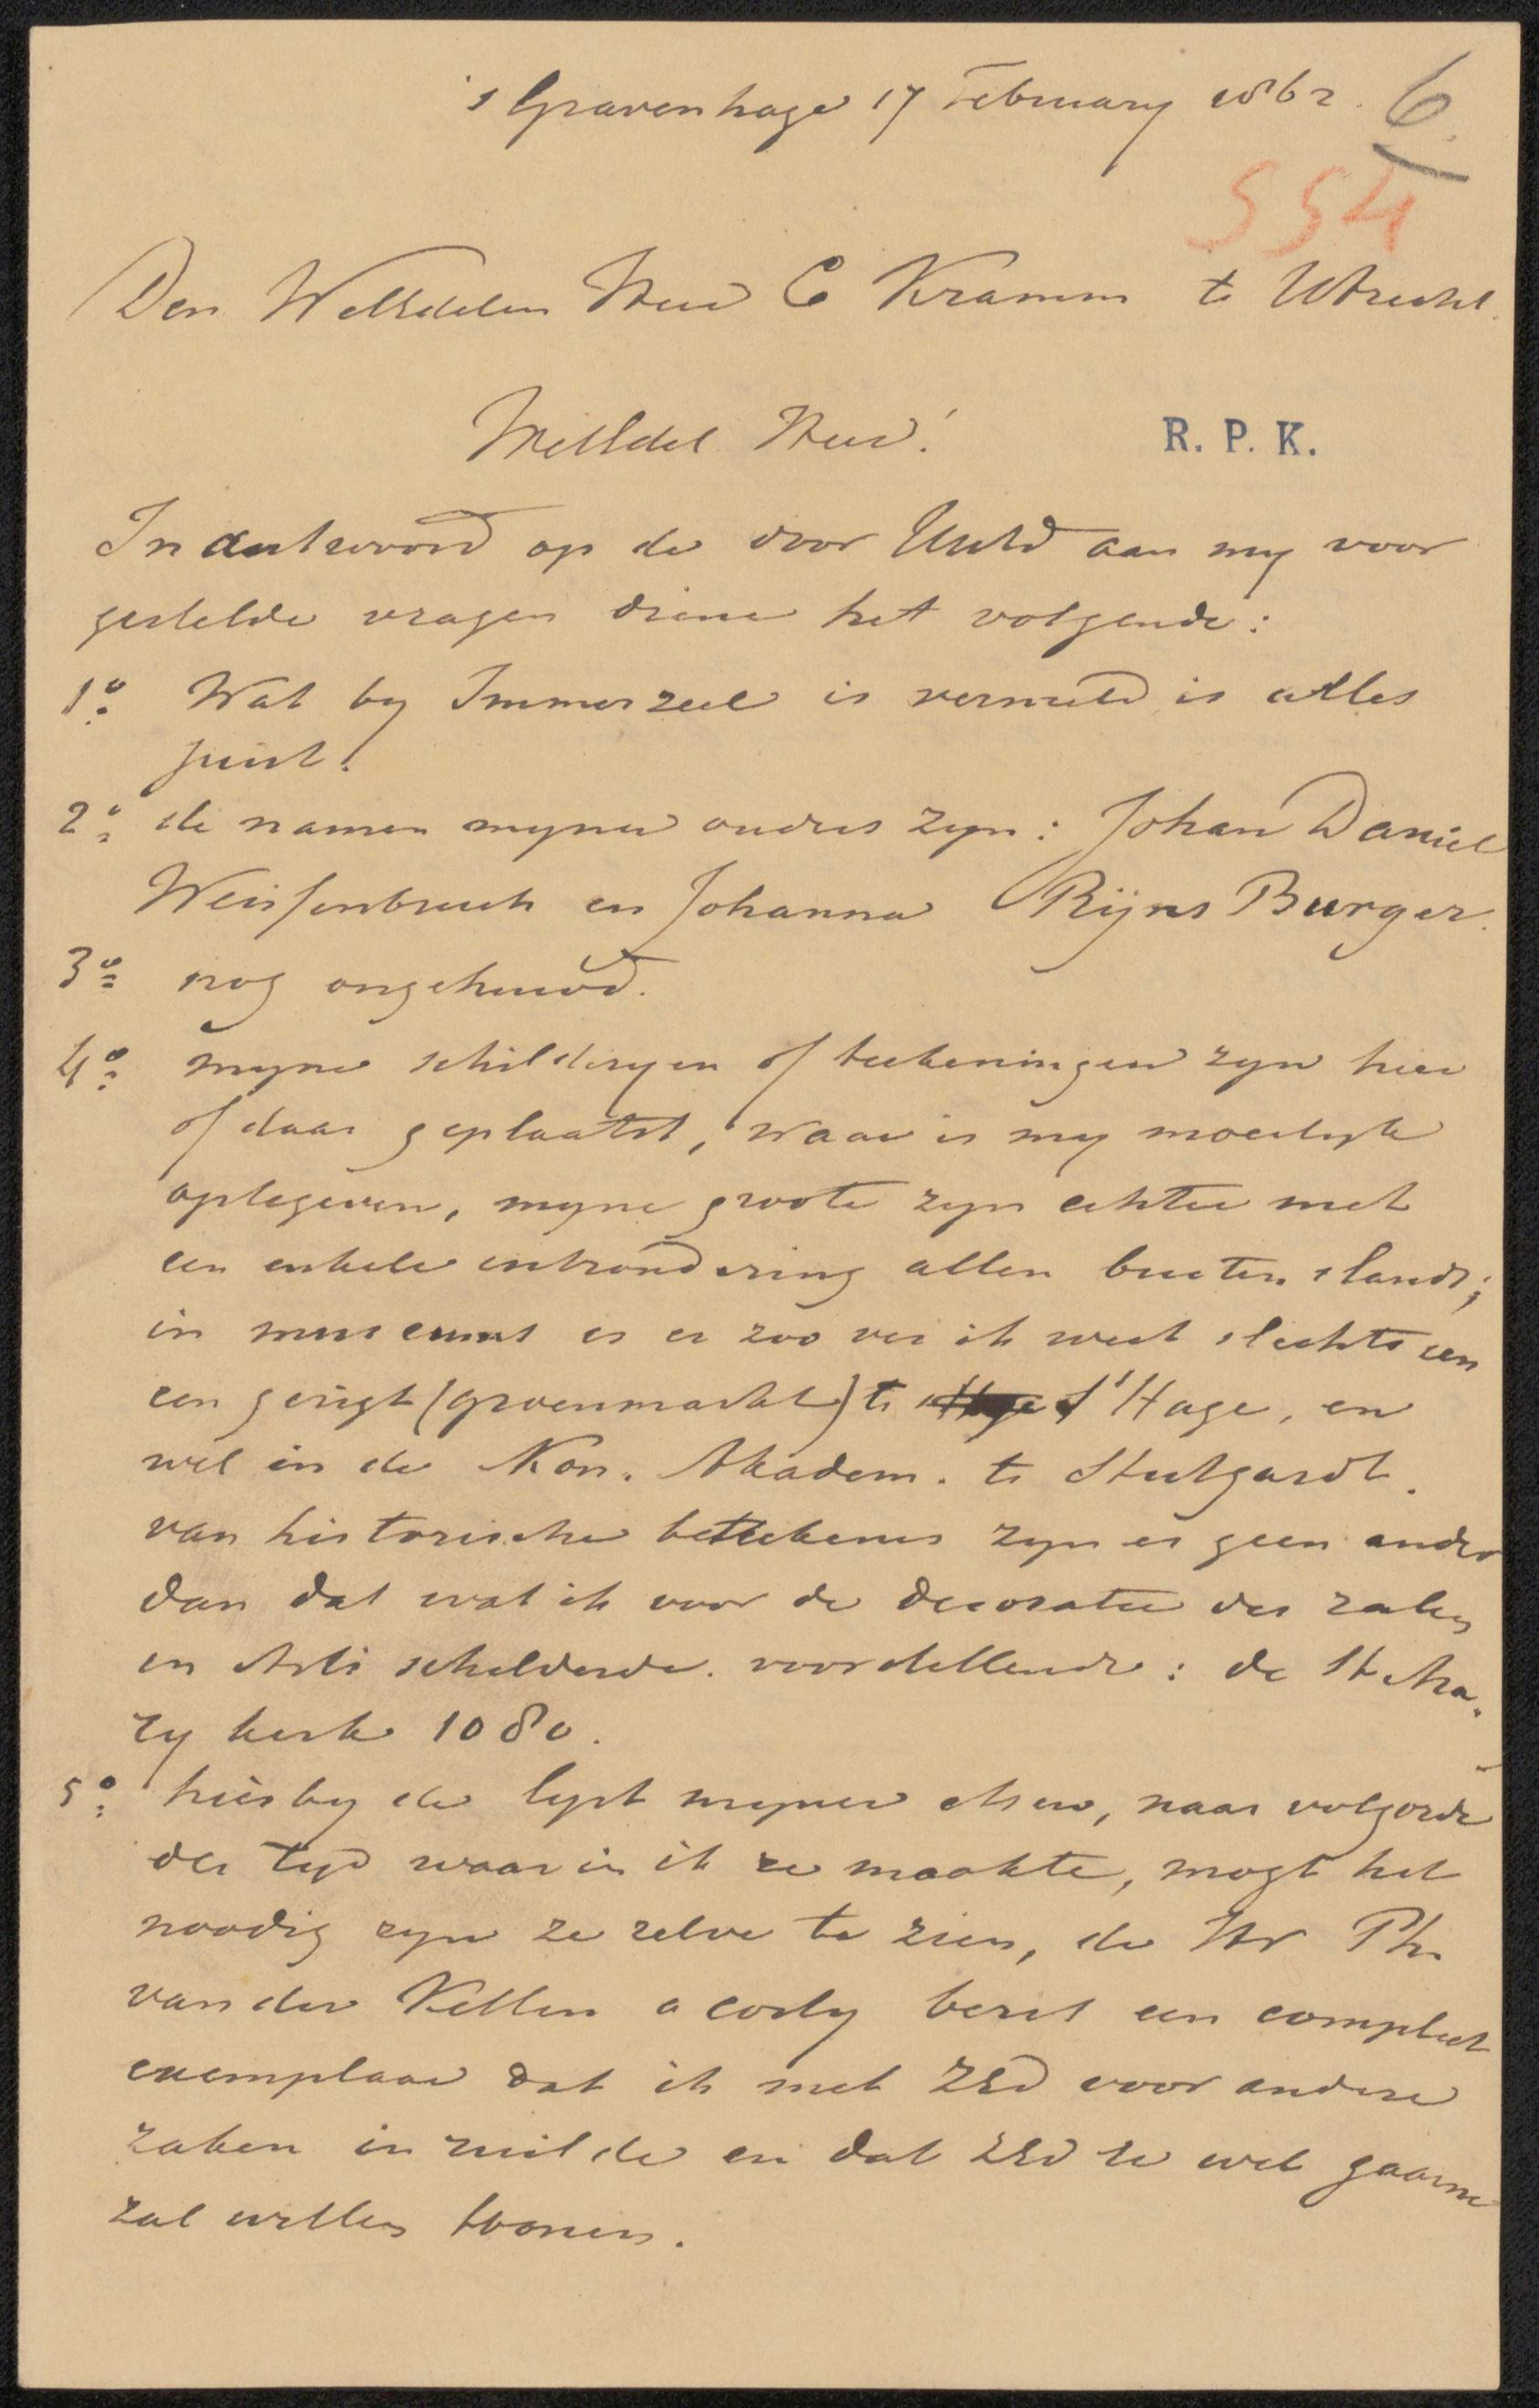 's Gravenhage 17 February 1862. 6
554
Den WelEdelen Heer C Kramm te Utrecht.
WelEdel Heer!
R. P. K.
In antwoord op de door UwEd aan my voor
gestelde vragen diene het volgende:
1o Wat by Immerzeel is vermeld is alles
juist.
2o de namen myner ouders zyn: Johan Daniel
Weissenbruch en Johanna Rijns Burger.
3o nog ongehuwd.
4o myne schilderyen of teekeningen zyn hier
of daar geplaatst, waar is my moeilyk
optegeven, myne groote zyn echter met
een enkele uitzondering allen buiten slands;
in museums is er zoo ver ik weet slechts een
een gezigt (groenmarkt) te s'Hage, en
wel in de Kon. Akadem. te Stutgardt.
van historische beteekenis zyn er geen ander
dan dat wat ik voor de decoratie der zalen
in Arti schilderde. voorstellende: de St Ma.
ry kerk 1080.
5o hierby de lyst myner etsen, naar volgorde
der tyd waar in ik ze maakte, mogt het
noodig zyn ze zelve te zien, de Hr Ph.
van der Kellen bezit een compleet
exemplaar dat ik met ZEd voor andere
zaken in ruilde en dat ZEd ze wel gaarne
zal willen toonen.